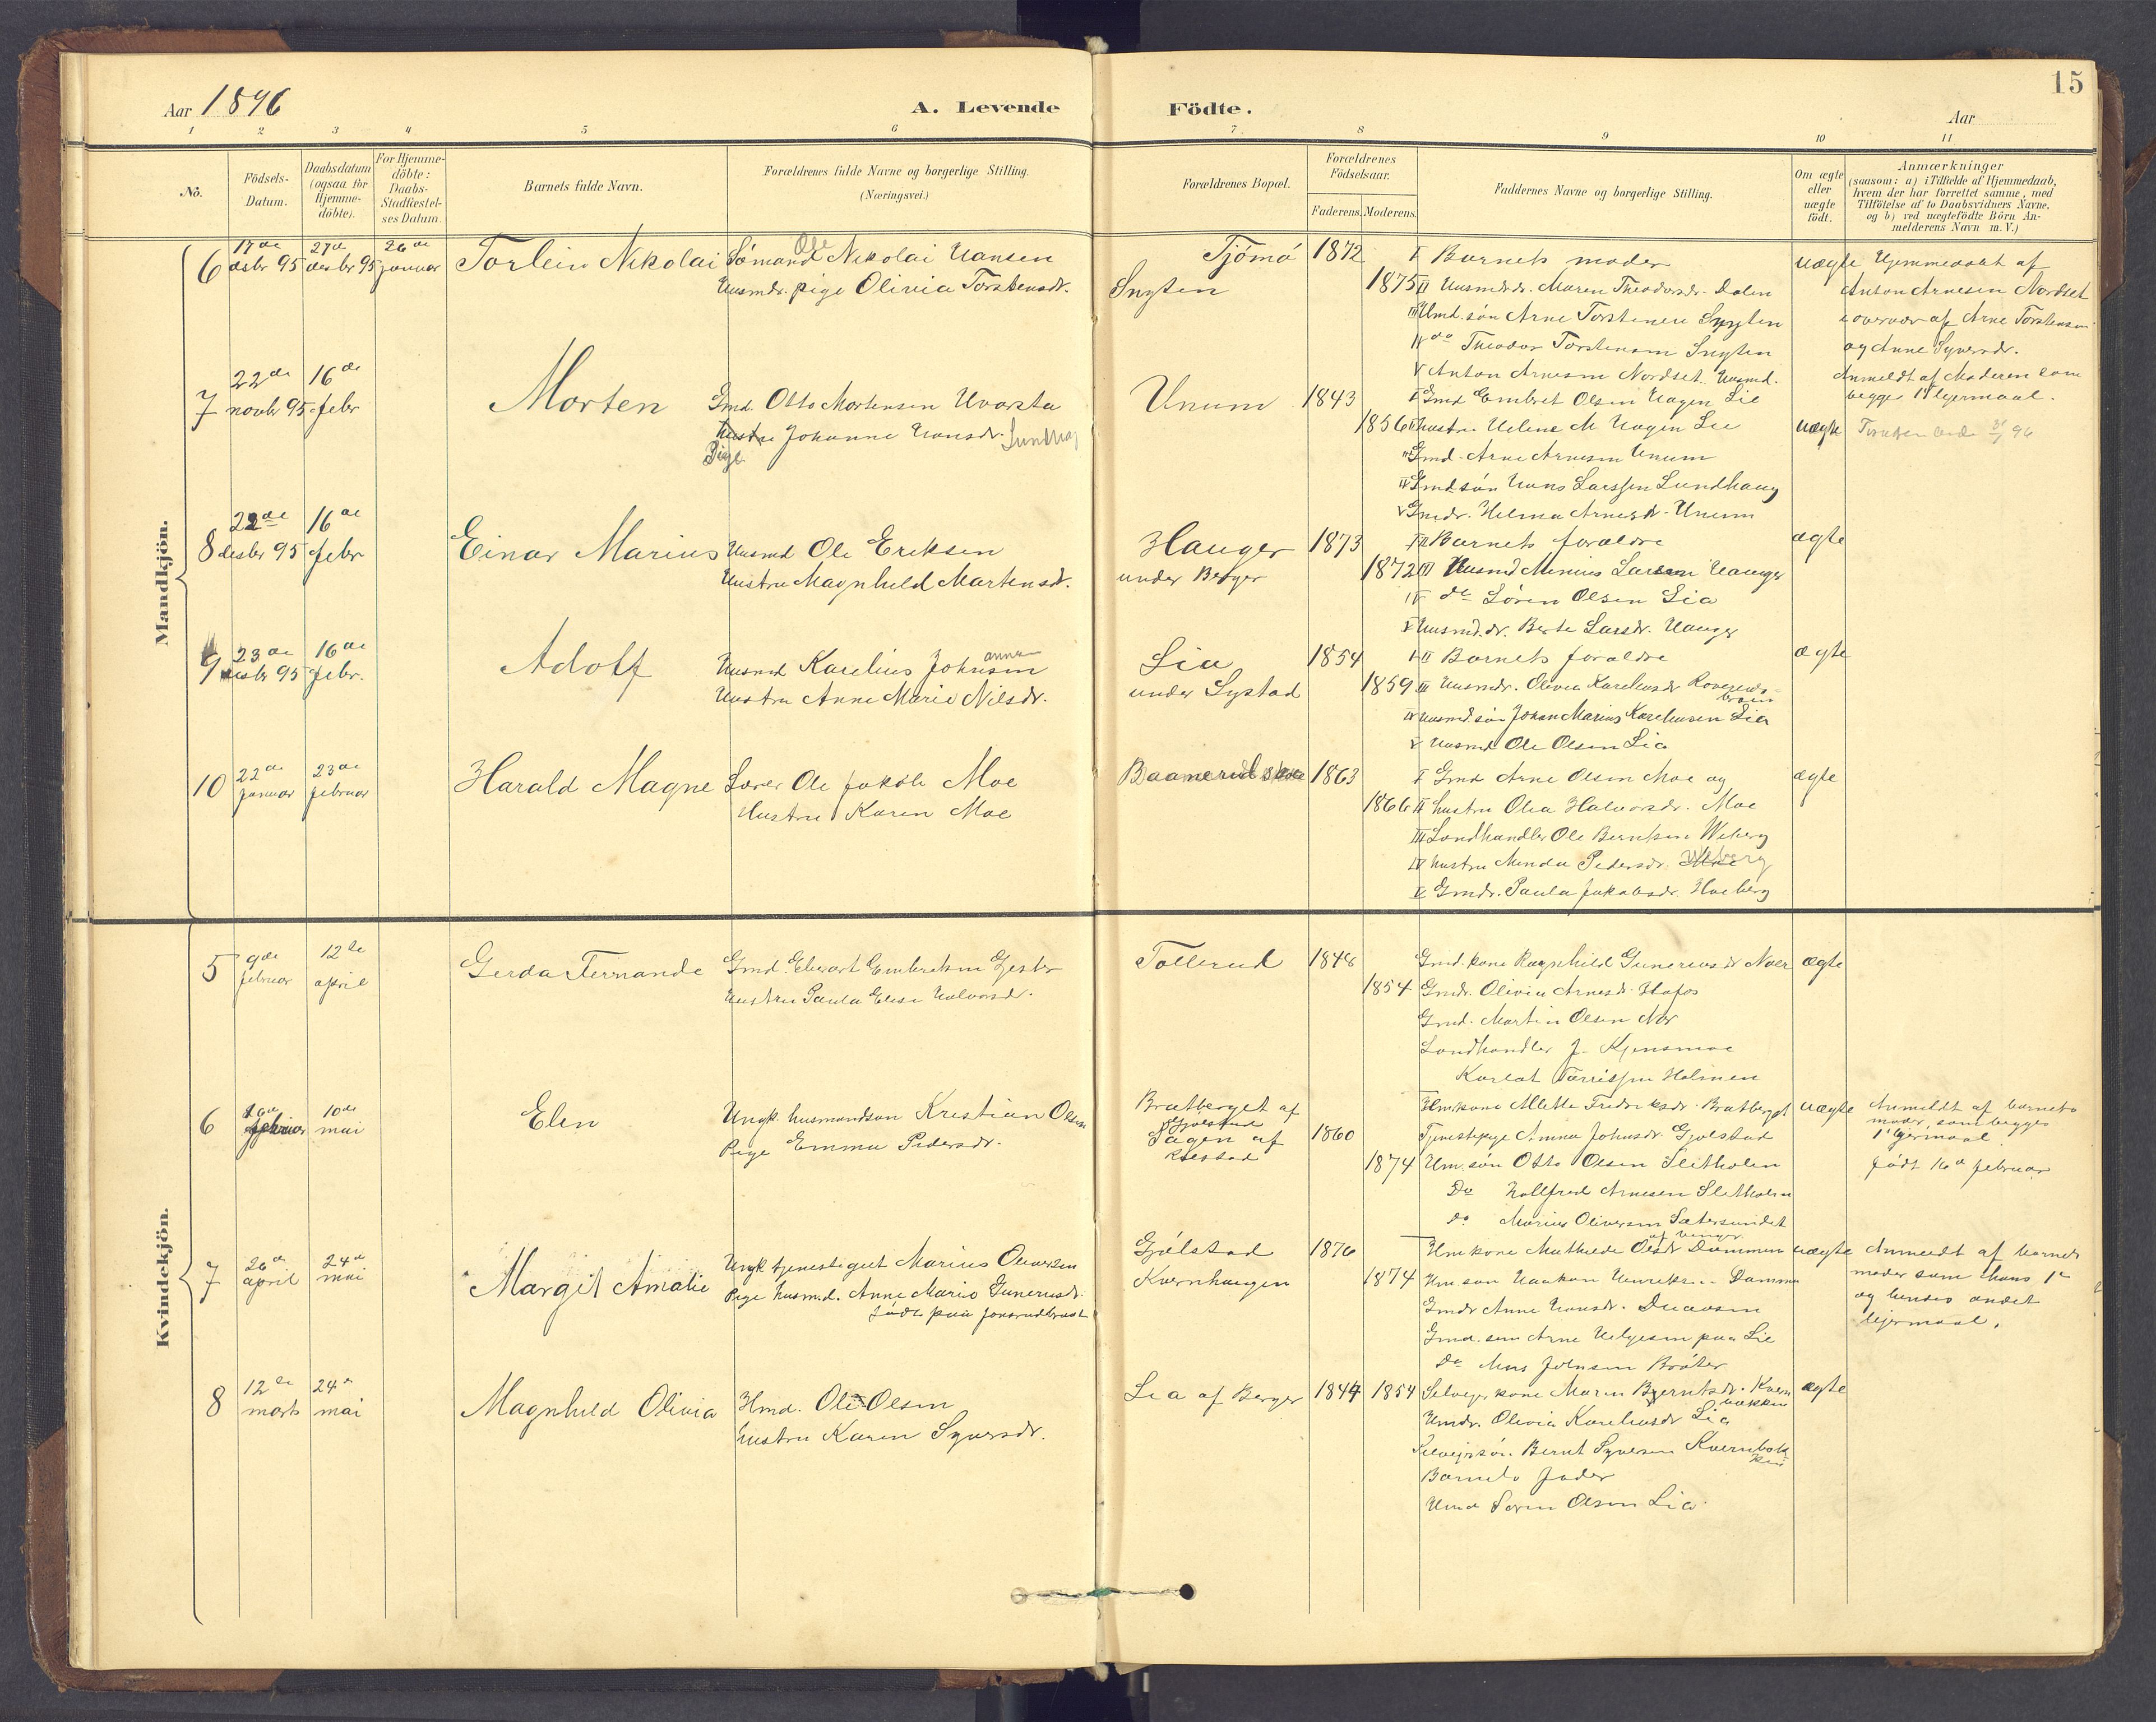 15
Aar 1896
A. Levende Födte.
Aar
1 2 3 4 5 6 7 8 9 10 11
No.
Födsels-Datum.
Daabsdatum (ogsaa for Hjemme-döbte).
For Hjemme-döbte: Daabs-Stadfæstel-ses Datum.
Barnets fulde Navn.
Forældrenes fulde Navne og borgerlige Stilling.
(Næringsvei.)
Forældrenes Bopæl.
Forældrenes Födselsaar.
Faderens. Moderens.
Faddernes Navne og borgerlige Stilling.
Om ægte eller uægte födt.
Anmærkninger
(saasom: a) i Tilfælde af Hjemmedaab,
hvem der har forrettet samme, med
Tilföielse af to Daabsvidners Navne,
og b) ved uægtefödte Börn An-
melderens Navn m. V.)
Mandkjön.
6
17de desbr 95
27de desbr 95
26de januar
Torlein Nikolai
Sömand Ole Nikolai Hansen
Husmdr. pige Olivia Torstensdr.
Tjömö
Snyten
1872
1875
I Barnets moder
II Husmdsdr. Maren Theodorsdr. Dalen
III Husmd. sön Arne Torstensen Snyten
IV do Theodor Torstensen Snyten
V Anton Arnesen Nordset. Husmd.
uægte
Hjemmedöbt af
Anton Arnesen Nordset
i overvær af Arne Torstensen
og Anne Syversdr.
Anmeldt af Moderen som
begges 1ste leiermaal.
7
22de novbr 95
16de febr
Morten
Gmd. Otto Mortensen Uvorsta
hustru Johanne Hansdr. Lundhag
Pige
Unum
1843
1856
I Gmd Embret Olsen Hagen Lie
II hustru Helene M Hagen Lie
III Gmd. Arne Arnesen Unum
IV Gmd sön Hans Larssen Lundhaug
V Gmdr. Helma Arnesdr. Unum
uægte
8
22de desbr 95
16de febr
Einar Marius
Husmd Ole Eriksen
Hustru Magnhild Martensdr.
Hauger
under Berger
1873
1872
I II Barnets forældre
III Husmd Minius Larsen Hauger
IV do Sören Olsen Lia
V Husmd. dr. Berte Larsdr. Hauger
ægte
9
23de desbr 95
16de febr.
Adolf
Husmd Karelius Johnsen
Hustru Anne Marie Nilsdr.
Lia
under Systad
1854
1859
I II Barnets forældre
III Husmdr. Olivia Kareliusdr
IV Husmd. sön Johan Marius Kareliusen Lia
V Husmd Ole Olsen Lia
ægte
10
22de januar
23de februar
Harald Magne
Lærer Ole Jakob Moe
Hustru Karen Moe
Baamerud skole
1863
1866
I Gmd Arne Olsen Moe og
II hustru Olea Halvorsdr. Moe
III Landhandler Ole Berntsen Weberg
IV hustru Minda Pedersdr. Weberg
V Gmdr. Paula Jakobsdr. Hoeberg
ægte
Kvindekjön.
5
9de februar
12te april
Gerda Fernande
Gmd. Edvart Embretsen Gjester
Hustru Paula Elise Halvorsd.
Tollerud
1848
1854
Gmd. kone Ragnhild Gunerusdr Noer
Gmdr. Olivia Arnesdr. Hafos
Gmd. Martin Olsen Noer
Landhandler J. Kjensmoe
Karlot Tarrissen Holmen
ægte
6
16de februar
10de mai
Elen
Ungk. husmandsön Kristian Olsen
Pige Emma Pedersdr.
Bratberget af
Gjölstad
Sagen af
Rolstad
1860
1874
Hmkone Mette Fredriksdr. Bratberget
Tjenestepige Anna Johnsdr. Gjölstad
Hm. sön Otto Olsen Sletholen
Do Hallfred Arnesen Sletholen
do Marius Oliversen Sætersundet
uægte
Anmeldt af barnets
moder, som begges
1ste leiermaal.
födt 16de februar
7
26de april
24de mai
Margit Amalie
Ungk tjenestegut Marius Oliversen
Pige husmd. Anne Marie Gunerusdr.
född paa Jonsrudbraat
Gjölstad
Kvernhaugen
1876
1874
Hmkone Mathilde Olsdr Dammen af Vinger
Hm sön Haakon Henriksen Dammen
Gmdr Anne Hansdr.
Gmd. sön Arne Helgesen paa Lie
Do Johnsen Bröter
uægte
Anmeldt af barnets
moder som hans 1ste
og hendes andet
leiermaal.
8
12te marts
24de mai
Magnhild Olivia
Hmd. Ole Olsen
hustru Karen Syversdr.
Lia af Berger
1844
1854
Selveier kone Maren Berntsdr. Kvernbakken
Hmdr. Olivia Kareliusdr Lia
Selveiersön. Bernt Syversen Kvernbakken
Barnets fader
Hmd Sören Olsen Lia
ægte